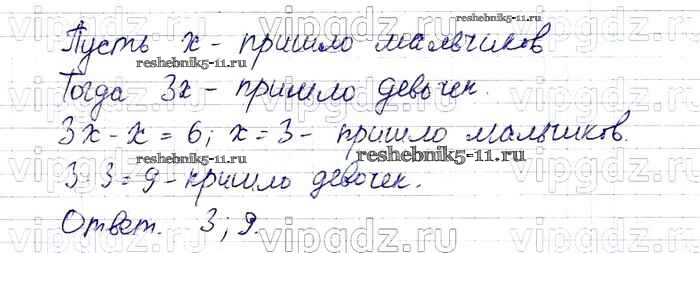 vipgdz.ru vipgdz.ru vipgdz.ru
reshebnik5-11.ru
Пусть x - пришло мальчиков
reshebnik5-11.ru
Тогда 3x - пришло девочек.
vipgdz.ru vipgdz.ru vipgdz.ru
3x - x = 6; x = 3 - пришло мальчиков.
reshebnik5-11.ru reshebnik5-11.ru
3·3 = 9 - пришло девочек.
vipgdz.ru vipgdz.ru vipgdz.ru
Ответ. 3; 9.